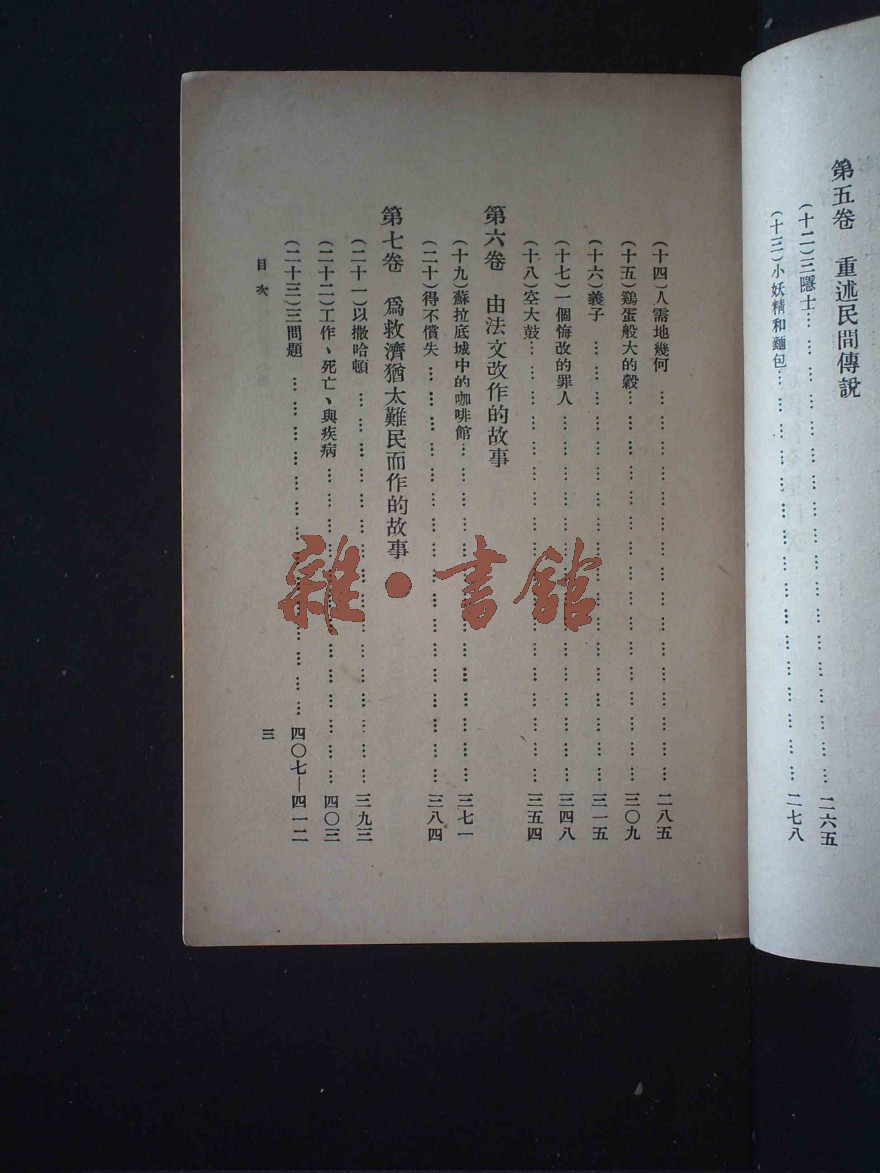 第五卷　重述民間傳說
(十二)三隱士……………………………………二六五
(十三)小妖精和麵包……………………………………二七八
(十四)人需地幾何……………………………………二八五
(十五)鷄蛋般大的穀……………………………………三〇九
(十六)義子……………………………………三一五
(十七)一個悔改的罪人……………………………………三四八
(十八)空大鼓……………………………………三五四
第六卷　由法文改作的故事
(十九)蘇拉底城中的咖啡館……………………………………三七一
(二十)得不償失……………………………………三八四
第七卷　爲救濟猶太難民而作的故事
(二十一)以撒哈頓……………………………………三九三
(二十二)工作、死亡、與疾病……………………………………四〇三
(二十三)三問題……………………………………四〇七—四一二
目次
三
雜•書館